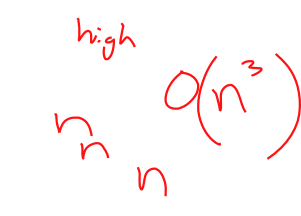 high
O(n³)
n
n
n